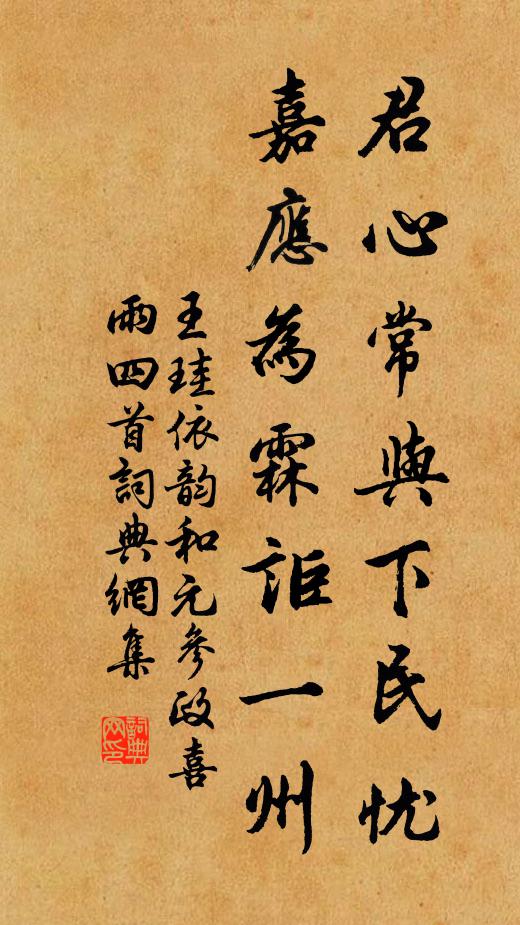 君心常與下民忧
嘉應為霖詎一州
王珪依韵和元參政喜
雨四首詞典網集
詞典网印